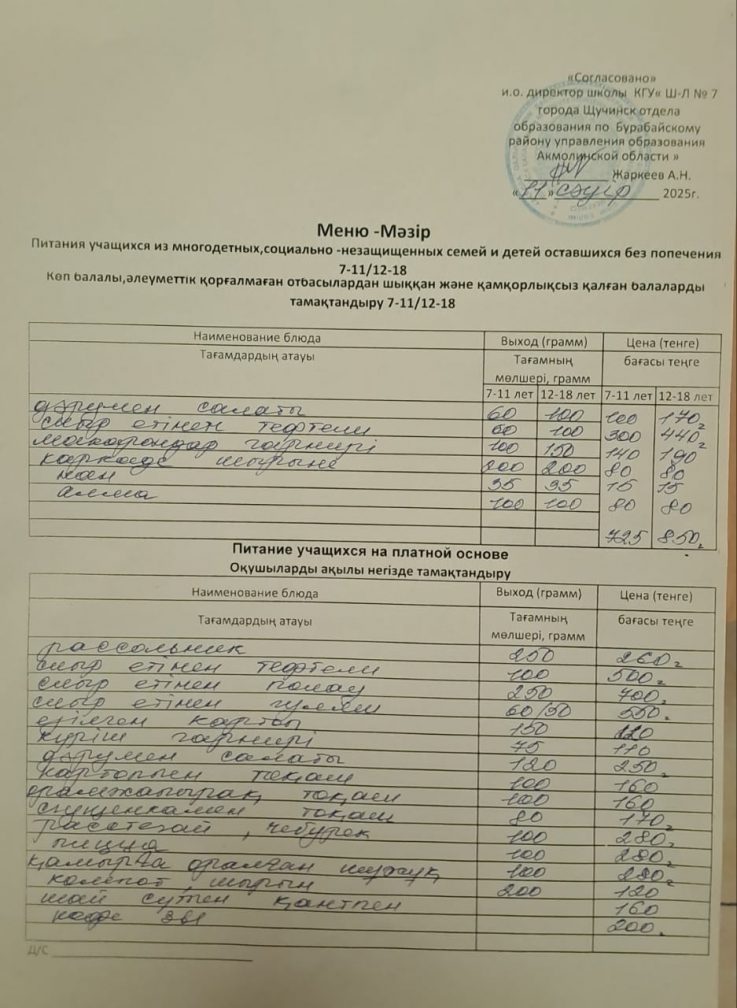 «Согласовано»
и.о. директор школы КГУ« Ш-Л № 7
города Щучинск отдела
образования по Бурабайскому
району управления образования
Акмолинской области »
Жаркеев А.Н.
« 11 » сәуір 2025г.
Меню -Мәзір
Питания учащихся из многодетных,социально -незащищенных семей и детей оставшихся без попечения
7-11/12-18
Көп балалы,әлеуметтік қорғалмаған отбасылардан шыққан және қамқорлықсыз қалған балаларды
тамақтандыру 7-11/12-18
Наименование блюда Выход (грамм) Цена (тенге)
Тағамдардың атауы Тағамның бағасы теңге
мөлшері, грамм
7-11 лет 12-18 лет 7-11 лет 12-18 лет
дәрумен салаты 60 100 100 170
сиыр етінен тефтели 60 100 300 440
макарондар гарнирі 100 150 140 190
каркаде шырыны 200 200 80 80
нан 35 35 15 15
алма 100 100 80 80
725 850
Питание учащихся на платной основе
Оқушыларды ақылы негізде тамақтандыру
Наименование блюда Выход (грамм) Цена (тенге)
Тағамдардың атауы Тағамның бағасы теңге
мөлшері, грамм
рассольник 250 260
сиыр етінен тефтели 100 500
сиыр етінен палау 250 700
сиыр етінен гуляш 60/50 550
езілген картоп 150 110
күріш гарнирі 75 110
дәрумен салаты 120 250
картоппен тоқаш 100 160
тоқаш 100 160
сгущенкамен тоқаш 80 170
, чебурек 100 280
пицца 100 280
қамырға оралған шұжық 100 280
компот, шырын 200 120
шай сүтпен қантпен 160
кофе 3в1 200
Д/С